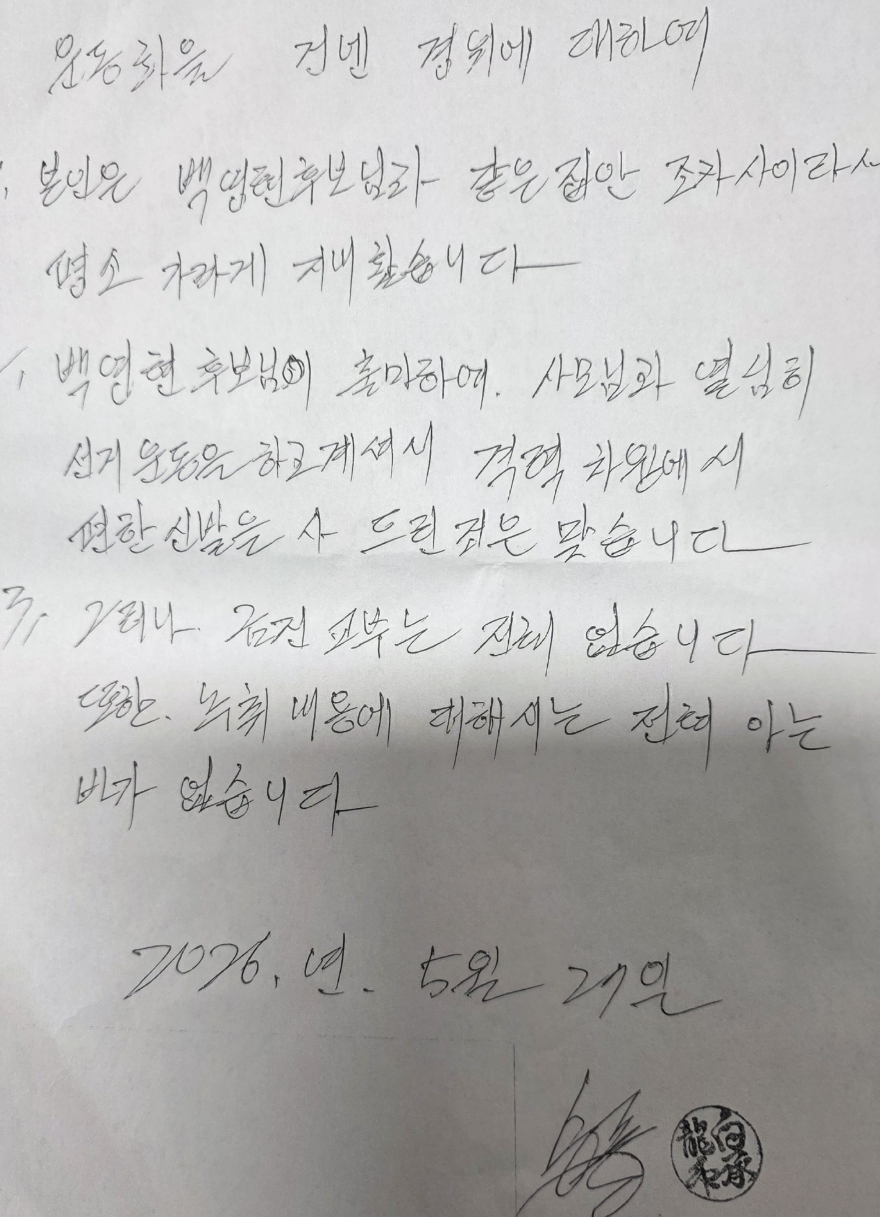 운동화을 건넨 경위에 대하여
1. 본인은 백영현후보님과 같은집안 조카사이라서
평소 가깝게 지내 왔습니다
백영현 후보님이 출마하여. 사모님과 열심히
선거 운동을 하고계셔서 격려 차원에서
편한 신발을 사 드린것은 맞습니다
3. 그러나 금전 교부는 전혀 없습니다
또한. 녹취 내용에 대해서는 전혀 아는
바가 없습니다
2026. 년. 5월 27일